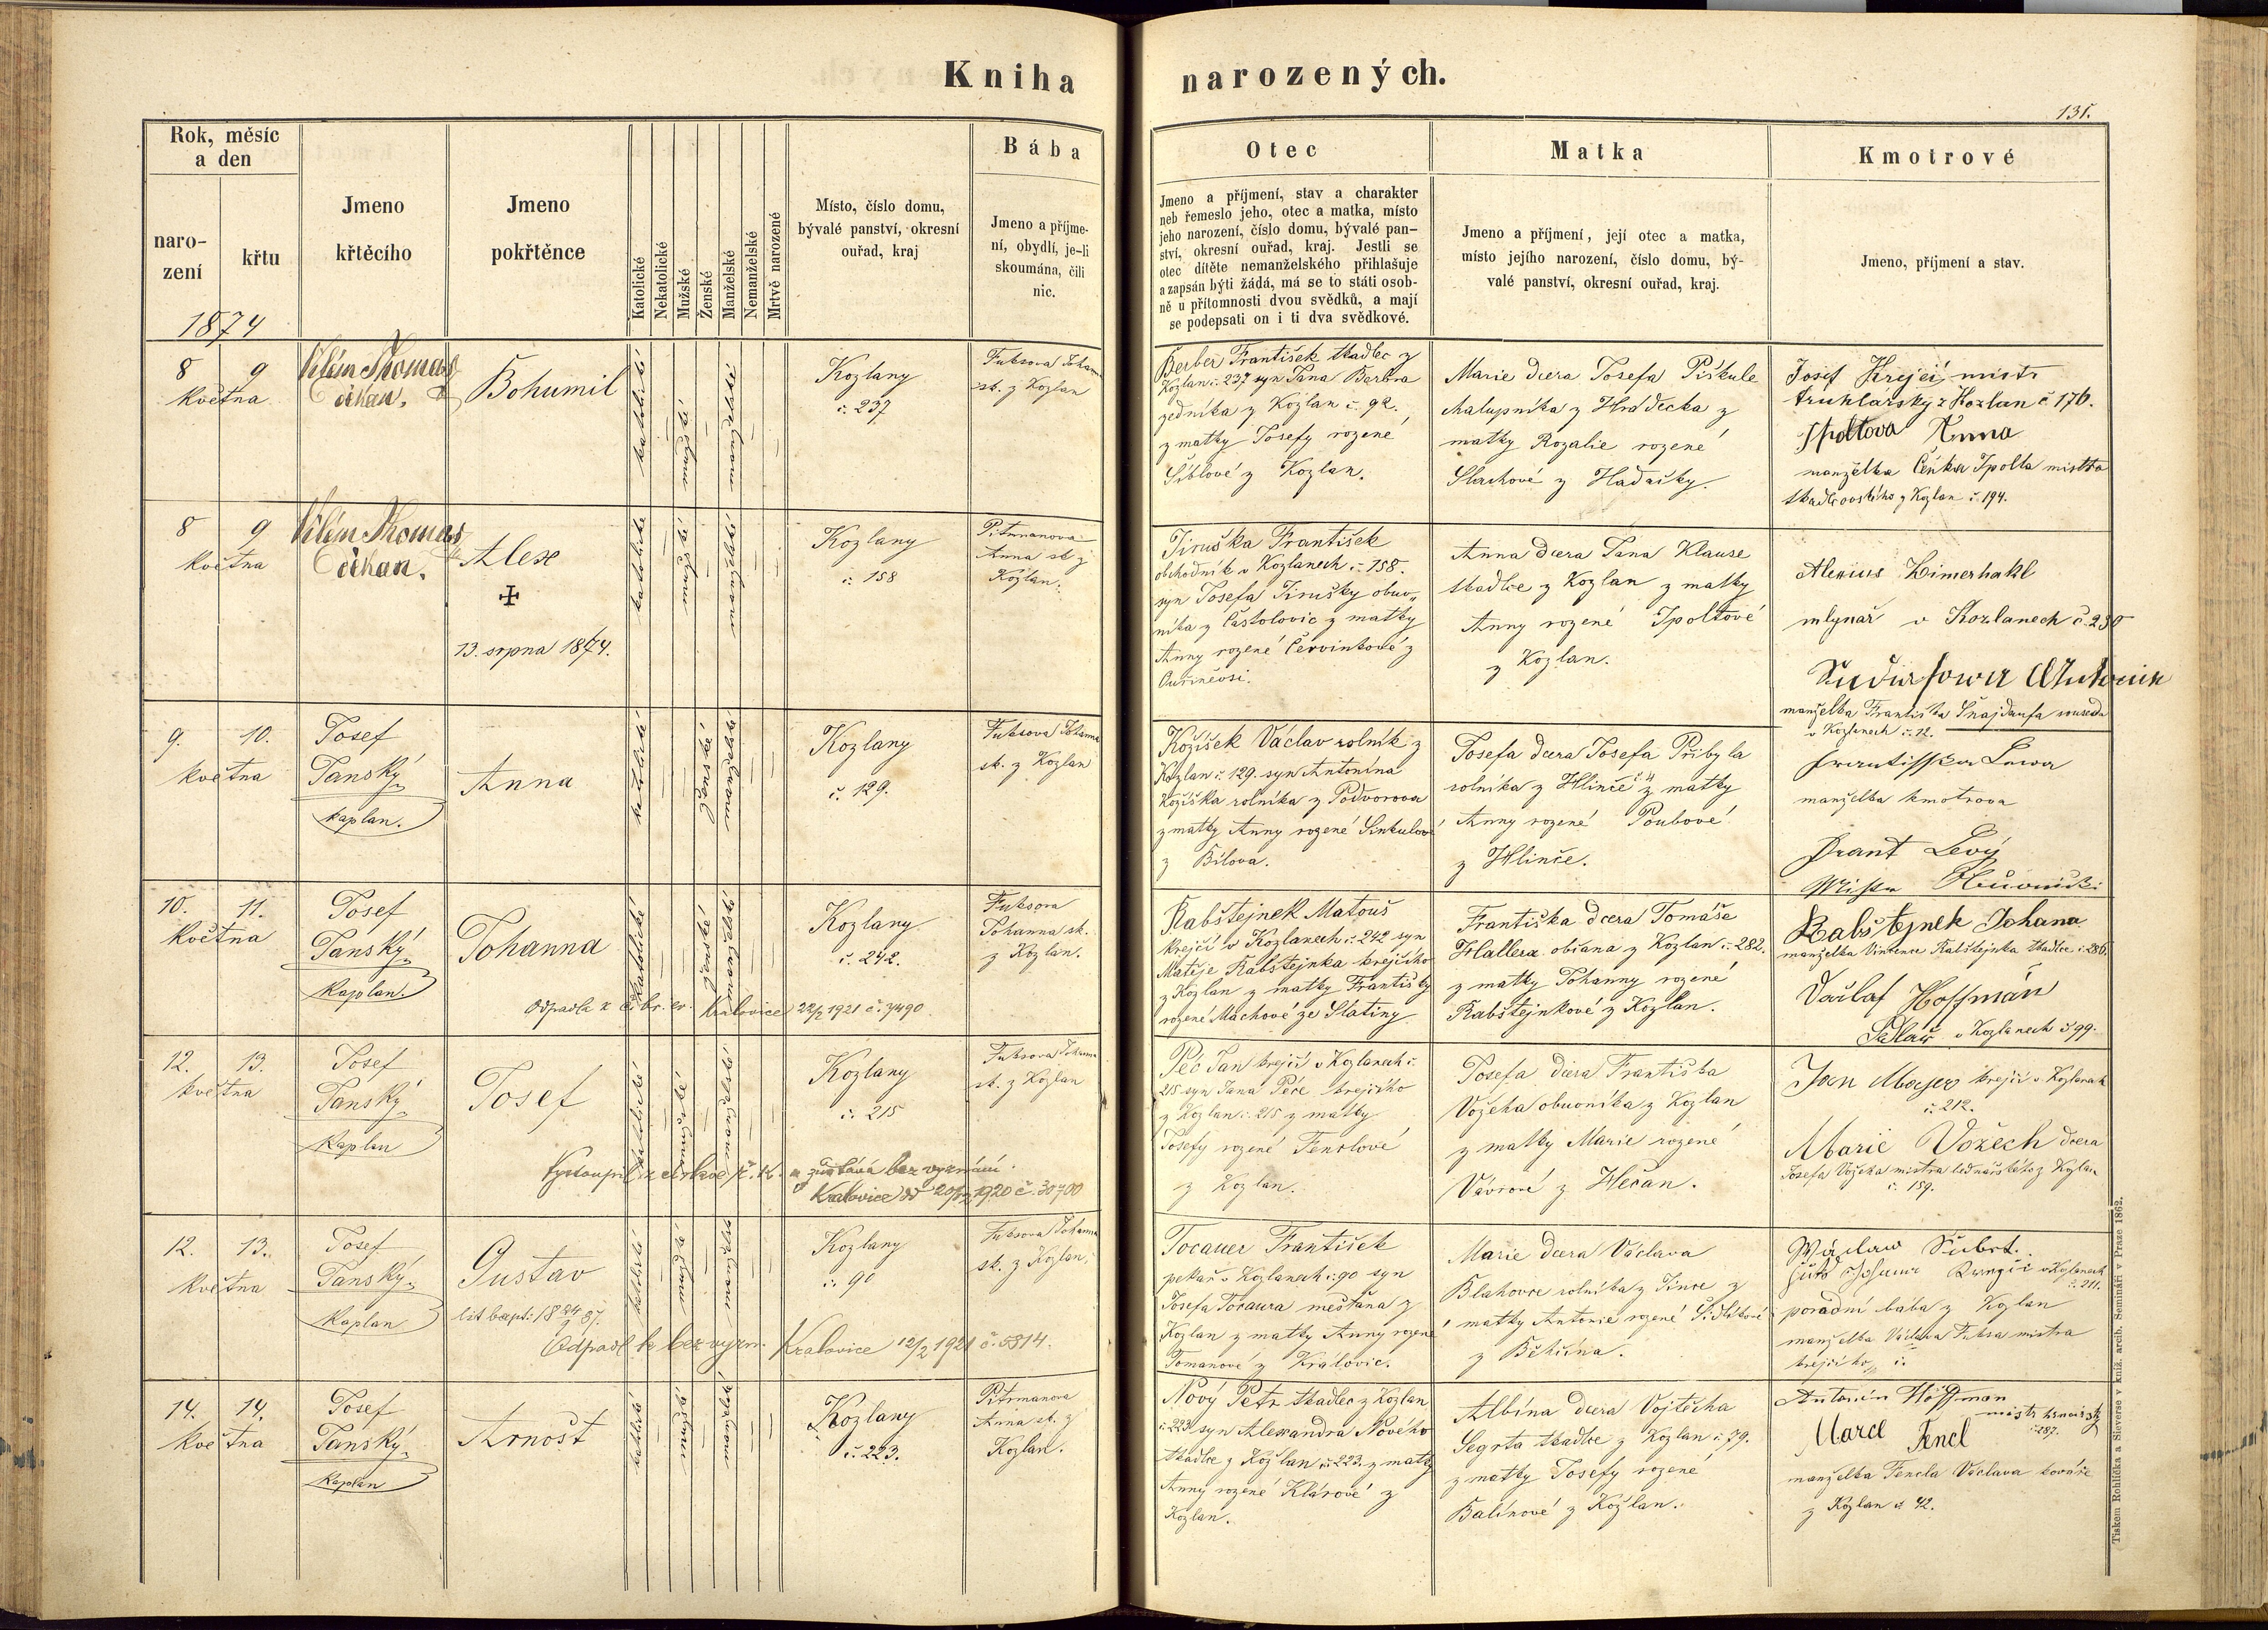 Kniha narozených.
131.
Rok, měsíc
a den
naro-
zení
křtu
1874
Jmeno
křtěcího
Jmeno
pokřtěnce
Katolické
Nekatolické
Mužské
Ženské
Manželské
Nemanželské
Mrtvě narozené
Místo, číslo domu,
bývalé panství, okresní
ouřad, kraj
Bába
Jmeno a příjme-
ní, obydlí, je-li
skoumána, čili
nic.
Otec
Jmeno a příjmení, stav a charakter
neb řemeslo jeho, otec a matka, místo
jeho narození, číslo domu, bývalé pan-
ství, okresní ouřad, kraj. Jestli se
otec dítěte nemanželského přihlašuje
a zapsán býti žádá, má se to státi osob-
ně u přítomnosti dvou svědků, a mají
se podepsati on i ti dva svědkové.
Matka
Jmeno a příjmení, její otec a matka,
místo jejího narození, číslo domu, bý-
valé panství, okresní ouřad, kraj.
Kmotrové
Jmeno, příjmení a stav.
8 9
května
Vilém Thomas
děkan.
Bohumil
katolické
mužské
manželské
Kozlany
č. 237
Fuksova Johanna
zk. z Kozlan
Berber František tkadlec z
Kozlan č. 237 syn Jana Berbra
zedníka z Kozlan č. 92.
z matky Josefy rozené
Šiblové z Kozlan.
Marie dcera Josefa Piškule
chalupníka z Hrádecka z
matky Rozalie rozené
Slachové z Hadačky.
Josef Krejcí, mistr
truhlářský z Kozlan č 176.
Špoltova Anna
manželka Čeňka Špolta mistra
tkadlcovského z Kozlan č. 194.
8 9
května
Vilém Thomas
děkan.
Alex
✠
13. srpna 1874.
katolické
mužské
manželské
Kozlany
č. 158
Pitrmanova
Anna zk z
Kozlan.
Jiruška František
obchodník v Kozlanech č. 158.
syn Josefa Jirušky obuv„
níka z Častolovic z matky
Anny rozené Červinkové z
Anna dcera Jana Klause
tkadlce z Kozlan z matky
Anny rozené Špoltové
z Kozlan.
Alexius Zimerhakl
mlynář v Kozlanech č. 230
manželka Františka Šnajdaufa souseda
v Kozlanech č. 12.
9. 10.
května
Josef
Tanský
kaplan.
Anna
katolické
ženské
manželské
Kozlany
č. 129.
Fuksova Johanna
zk. z Kozlan
Kožíšek Václav rolník z
Kozlan č. 129. syn Antonína
Kožíška rolníka z Podvorova
z matky Anny rozené Sinkulové
z Bílova.
Josefa dcera Josefa Přibyla
rolníka z Hlinče č 4 z matky
Anny rozené Poubové
z Hlinče.
Frantisska Lewa
manželka kmotrova
Frant Levý
10. 11.
května
Josef
Tanský
kaplan.
Johanna
katolické
ženské
manželské
Kozlany
č. 242.
Fuksova
Johanna zk.
z Kozlan.
Odpadla k čbr. ev. Kralovice 22/2 1921 č. 7490
Rabštejnek Matouš
krejčí v Kozlanech č. 242 syn
Matěje Rabštejnka krejčího
z Kozlan z matky Františky
rozené Machové ze Slatiny
Františka dcera Tomáše
Hallera občana z Kozlan č. 282.
z matky Johanny rozené
Rabštejnkové z Kozlan.
Rabštejnek Johana
manželka Vincence Rabštejnka tkadlce č. 286.
Vaclaf Hoffmán
Sedlář v Kozlanech č 99.
12. 13.
května
Josef
Tanský
kaplan
Josef
katolické
mužské
manželské
Kozlany
č. 215
Fuksova Johanna
zk. z Kozlan
Vystoupil z církve ř. k. a zůstává bez vyznání.
Kralovice 20/12 1920 č. 30700
Péč Jan krejčí v Kozlanech č.
215 syn Jana Péče krejčího
z Kozlan č. 215 z matky
Josefy rozené Fenclové
z Kozlan.
Josefa dcera Františka
Vožeha obuvníka z Kozlan
z matky Marie rozené
Vávrové z Hečan.
Jan Majer krejčí v Kozlanech
č. 212.
Marie Vožech dcera
č. 159.
12. 13.
května
Josef
Tanský
kaplan
Gustav
lit bapt: 18 24/9 87.
katolické
mužské
manželské
Kozlany
č. 90
Fuksova Johanna
zk. z Kozlan.
Odpadl k bez vyzn. Kralovice 12/2 1921 č. 5814.
Tocauer František
pekař v Kozlanech č. 90 syn
Josefa Tocaura měšťana z
Kozlan z matky Anny rozené
Tomanové z Královic.
Marie dcera Václava
Blahovce rolníka z Jinre z
matky Antonie rozené
z Běhčína.
Wáclaw Šubrt.
č. 211.
porodní bába z Kozlan
manželka Václava Fuksa mistra
krejčího č.
14. 14.
května
Josef
Tanský
kaplan
Arnošt
katolické
mužské
manželské
Kozlany
č. 223.
Pitrmanova
Anna zk. z
Kozlan.
Nový Petr tkadlec z Kozlan
č. 223 syn Alexandra Nového
tkadlce z Kozlan č. 223. z matky
Anny rozené Klárové z
Kozlan.
Albína dcera Vojtěcha
Segrta tkadlce z Kozlan č. 79.
z matky Josefy rozené
Balínové z Kozlan.
Antonín Hoffman
mistr
č. 287.
Fencl
manželka Fencla Václava kováře
z Kozlan č 42.
Tiskem Rohlíčka a Sieverse v kníž. arcib. Semináři v Praze 1862.